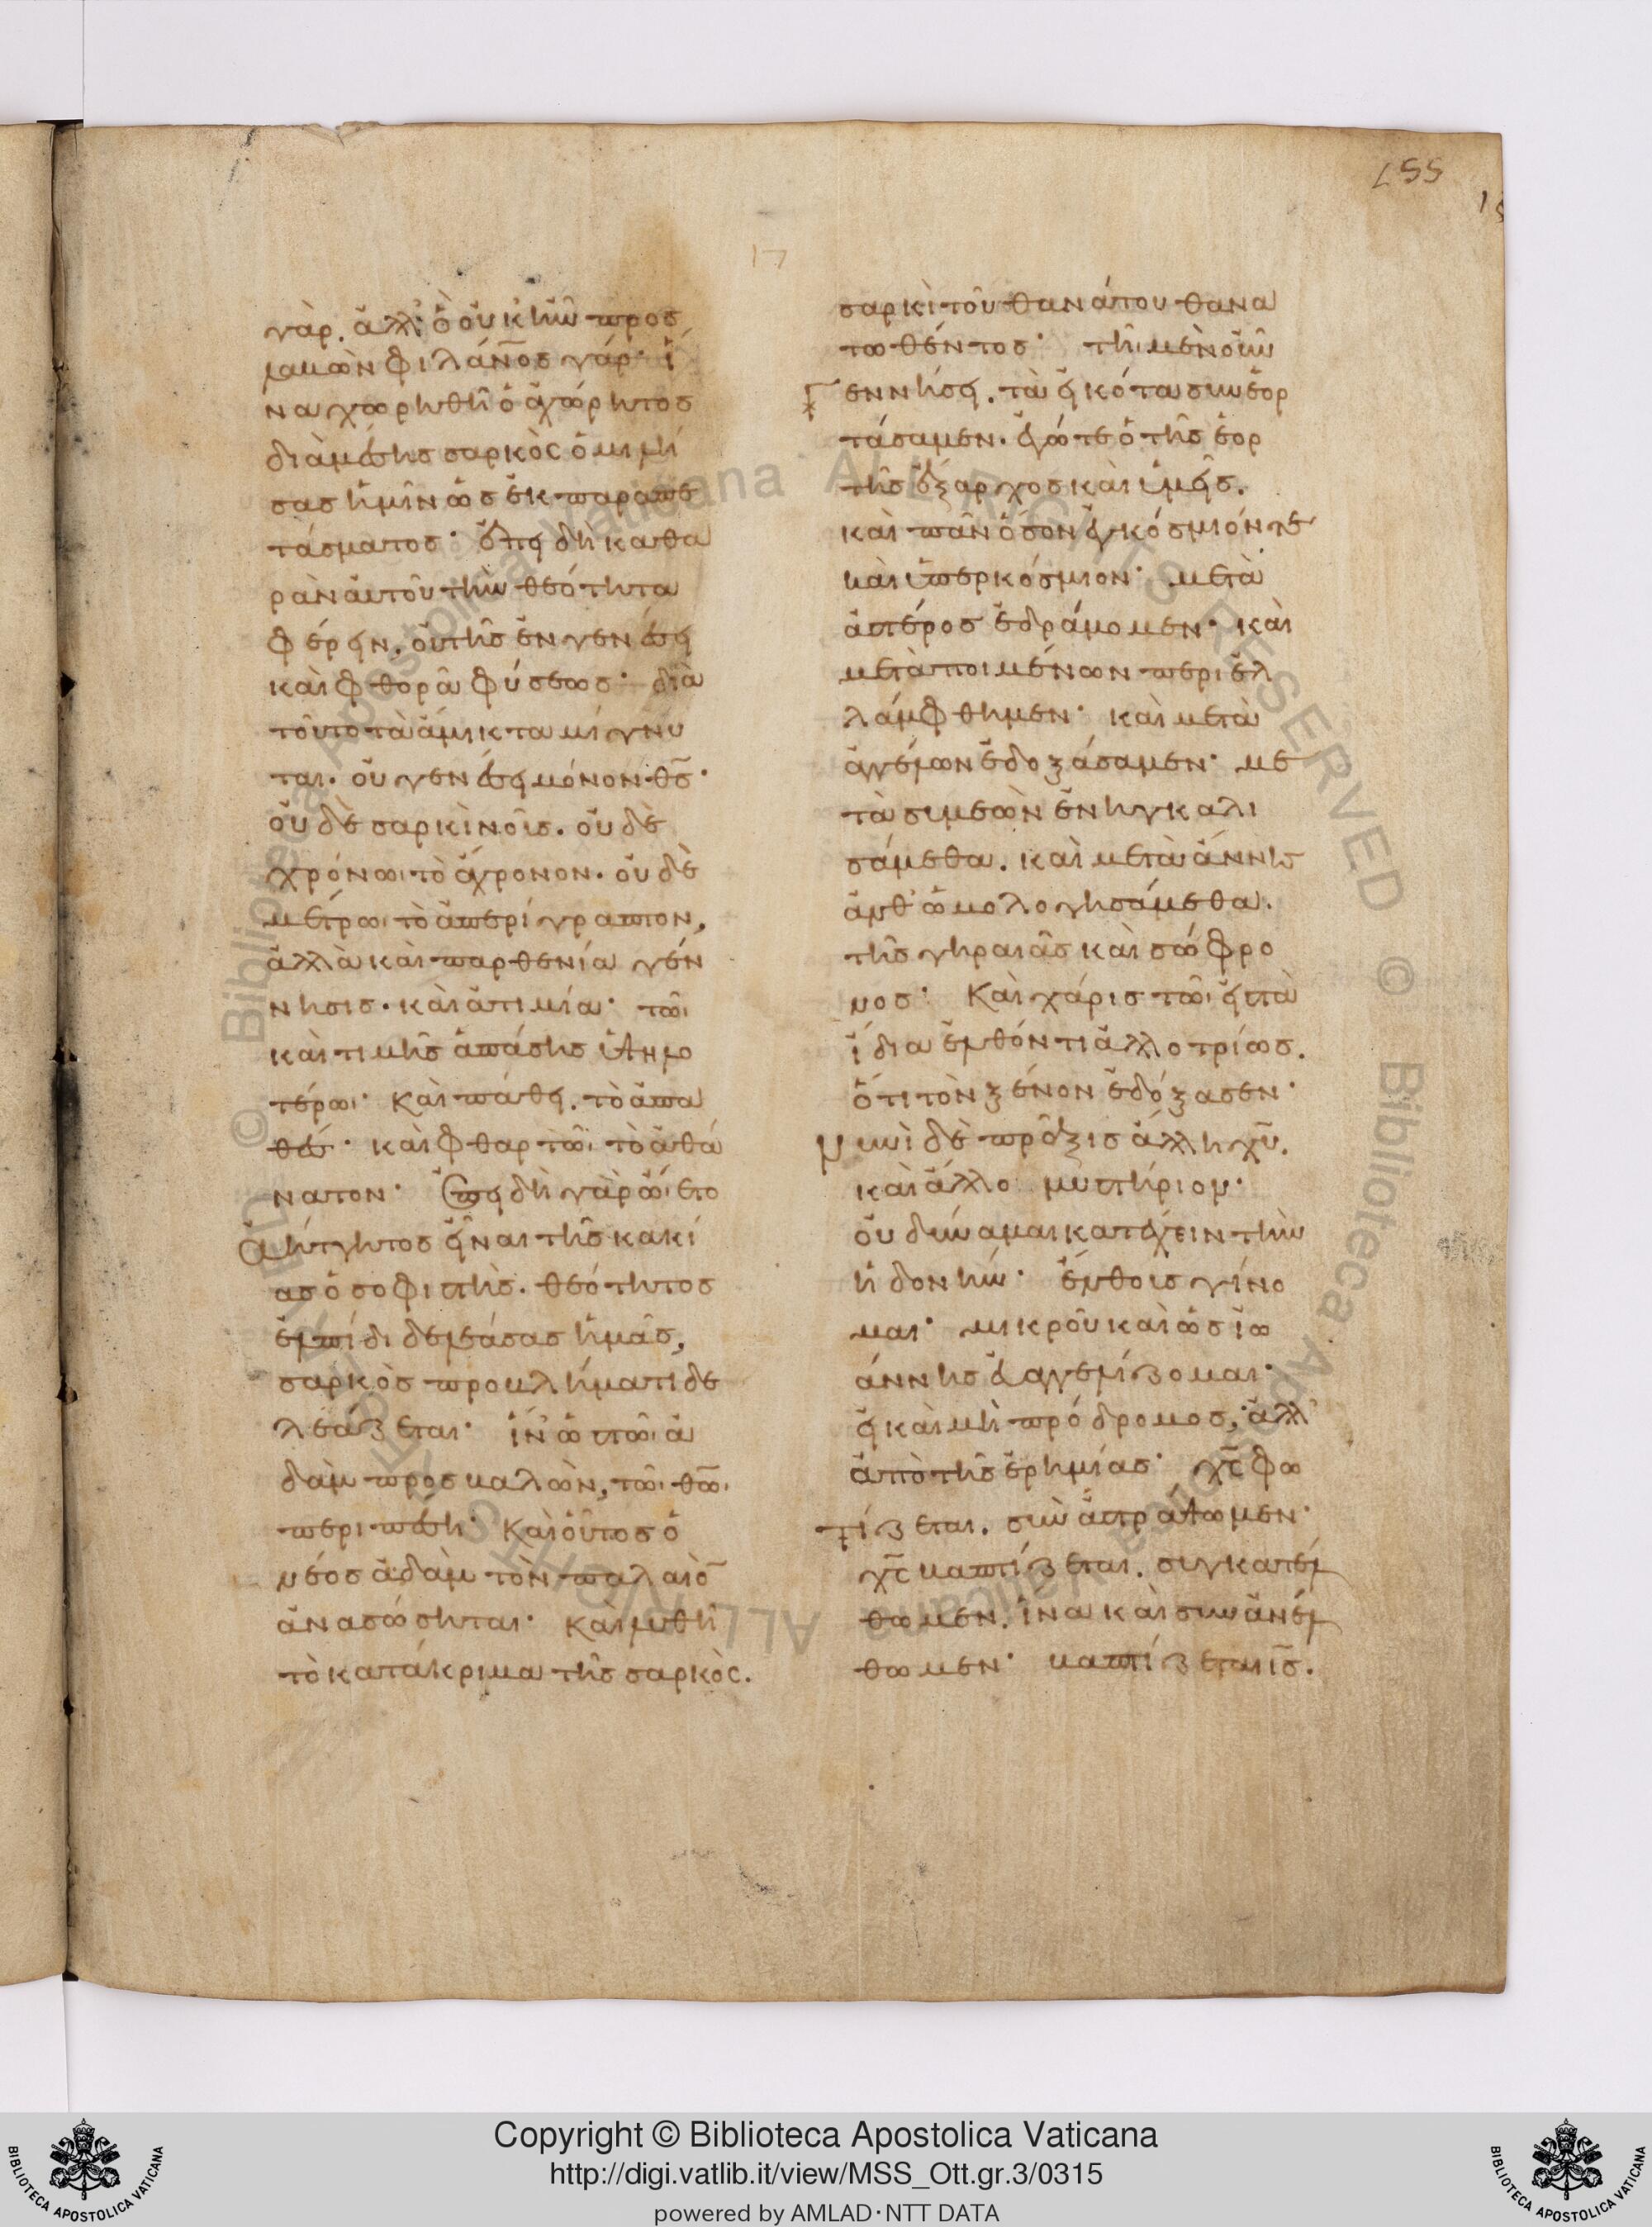 155
17
γὰρ. ἀλλ' ὃ οὐκ ἦν προσ
λαβὼν φιλάν̅οσ γάρ· ἵ
να χωρηθῆ ὁ ἀχώρητοσ
διὰ μέσησ σαρκὸς ὁμιλή
σασ ἡμῖν ὡσ ἐκ παραπε
τάσματοσ· ἐπει δὴ καθα
ρὰν αὐτοῦ τὴν θεότητα
φέρειν. οὐ τῆσ ἐν γενέσει
καὶ φθορᾶ φύσεωσ· διὰ
τοῦτο τὰ ἄμικτα μίγνυ
ται. οὐ γενέσει μόνον θσ̅·
οὐδὲ σαρκὶ νοῦσ. οὐδὲ
χρόνωι τὸ ἄχρονον. οὐδὲ
μέτρωι τὸ ἀπερίγραπτον,
ἀλλὰ καὶ παρθενία γέν
νησισ. καὶ ἀτιμία· τῶι
καὶ τιμῆσ ἁπάσησ ὑψηλο
τέρωι· καὶ πάθει. τὸ ἀπα
θέσ· καὶ φθαρτῶι τὸ ἀθά
νατον· Ἐπει δὴ γὰρ ὤιετο
ἀήττητοσ εἶναι τῆσ κακί
ασ ὁ σοφιστὴσ. θεότητοσ
ἐλπίδι δελεάσασ ἡμᾶσ,
σαρκὸσ προβλήματι δε
λεάζεται· ἵν' ὡσ τῶι ἀ
δὰμ προσβαλὼν, τῶι θω̅ι
περιπέση· καὶ οὗτοσ ὁ
νέοσ ἀδὰμ τὸν παλαιὸ̅
ἀνασώσηται· καὶ λυθῆ
τὸ κατάκριμα τῆσ σαρκὸς.
σαρκὶ τοῦ θανάτου θανα
τωθέντοσ· τῆι μὲν οὖν
γεννήσει. τὰ εἰκότα συνεορ
τάσαμεν. ἐγώ τε ὁ τῆσ ἑορ
τῆσ ἔξαρχοσ καὶ ὑμεῖσ.
καὶ πᾶν ὅσον ἐγκόσμιόν τε
καὶ ὑπερκόσμιον· μετὰ
ἀστέροσ ἐδράμομεν· καὶ
μετὰ ποιμένων περιελ
λάμφθημεν· καὶ μετὰ
ἀγγέλων ἐδοξάσαμεν· με
τὰ συμεὼν ἐνηγκαλι
σάμεθα. καὶ μετὰ ἄννησ
ἀνθ' ὡμολογησάμεθα.
τῆσ γηραιᾶσ καὶ σώφρο
νοσ· Καὶ χάρισ τῶι εἰσ τὰ
ἴδια ἐλθόντι ἀλλοτρίωσ.
ὅτι τὸν ξένον ἐδόξασεν·
νυνὶ δὲ πρᾶξισ ἄλλη χυ̅.
καὶ ἄλλο μυστήριον·
οὐ δύναμαι κατέχειν τὴν
ἡδονήν· ἔνθουσ γίνο
μαι· μικροῦ καὶ ὡσ ἰω
άννησ εὐαγγελίζομαι·
εἰ καὶ μὴ πρόδρομοσ, ἀλλ'
ἀπὸ τῆσ ἐρημίασ· χς̅ φω
τίζεται. συναστράψωμεν·
χς̅ βαπτίζεται. συγκατέλ
θωμεν. ἵνα καὶ συνανέλ
θωμεν· βαπτίζεται ισ̅.
Copyright © Biblioteca Apostolica Vaticana
http://digi.vatlib.it/view/MSS_Ott.gr.3/0315
powered by AMLAD·NTT DATA